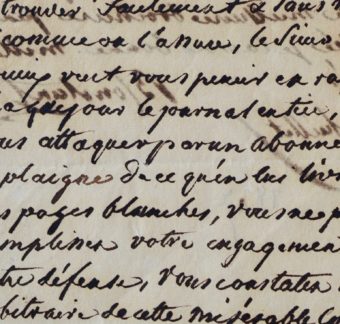 trouver seulement à sans
comme on l'assure, le Sieur
veut vous punir en ra
à que jour le journal entier,
us attaquer par un abonné
plaigne de ce qu'en lui livr
s pages blanches, vous ne p
mplissez votre engagemen
tre défense, vous constaten
bitraire de cette misérable Co